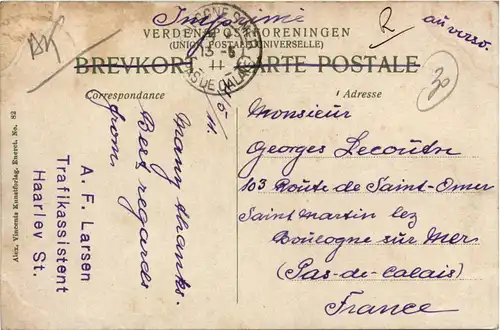 Imprimé
au verso.
VERDENSPOSTFORENINGEN
(UNION POSTALE UNIVERSELLE)
BREVKORT CARTE POSTALE
Correspondance
Adresse
15-5
11
PAS DE CALAIS
30
11.
Many thanks.
Best regards
from
A. F. Larsen
Trafikassistent
Haarlev St.
Alex. Vincents Kunstforlag. Eneret. No. 82
Monsieur
Georges Lecoutre
103 Route de Saint-Omer
Saint Martin lez
Boulogne sur Mer
(Pas-de-Calais)
France